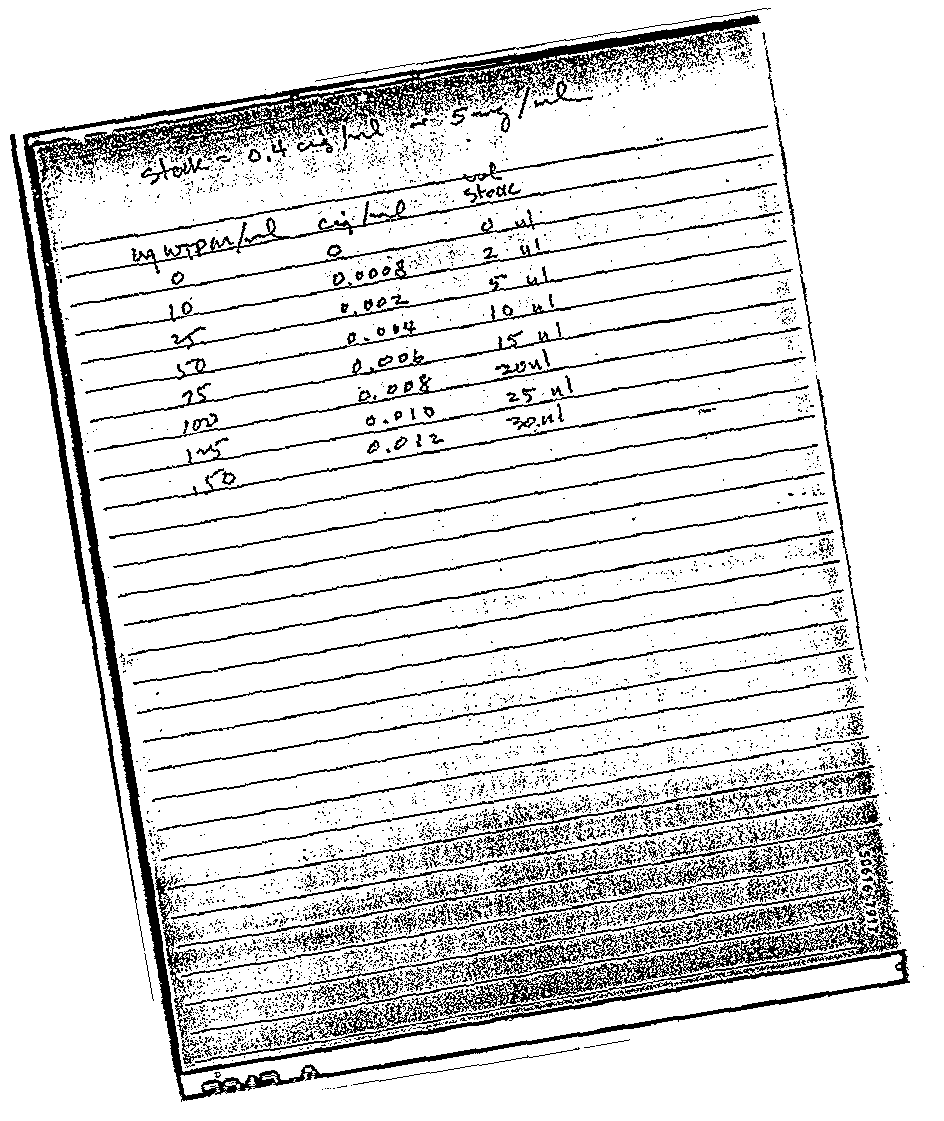 stock = 0.4 cig/ml → 5 mg/ml
vol
ug WTPM/ml cig/ml stock
0 0 0 ul
10 0.0008 2 ul
25 0.002 5 ul
50 0.004 10 ul
75 0.006 15 ul
100 0.008 20 ul
125 0.010 25 ul
150 0.012 30 ul